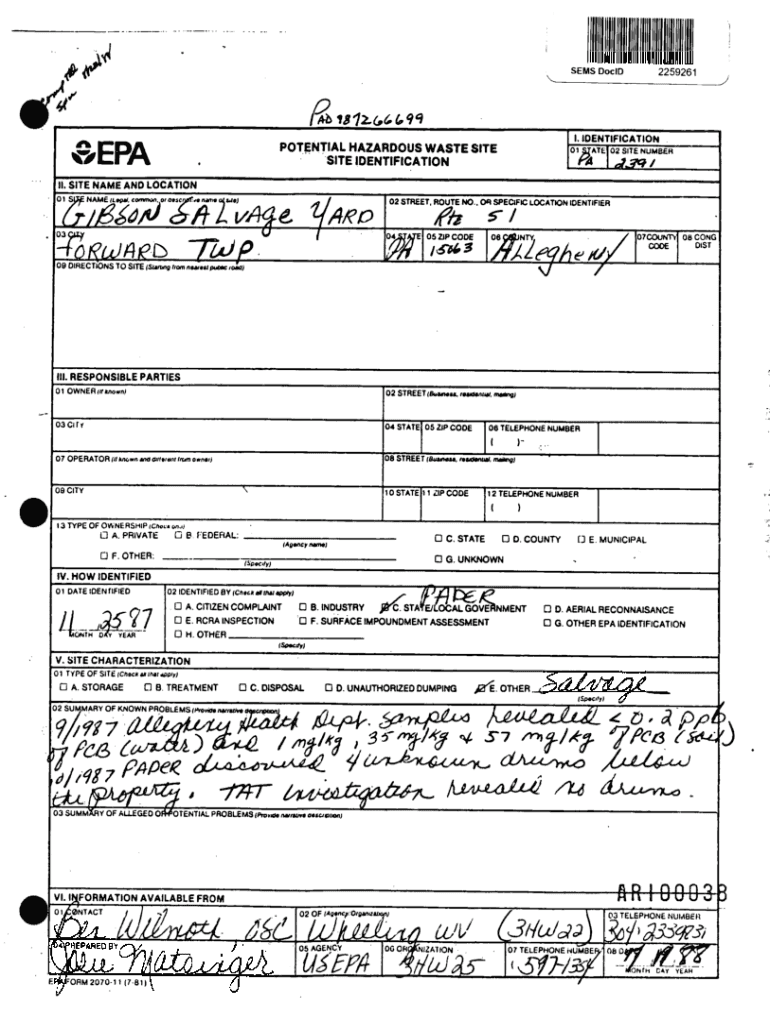 SEMS DocID 2259261
PAD 987266699
EPA
POTENTIAL HAZARDOUS WASTE SITE
SITE IDENTIFICATION
I. IDENTIFICATION
01 STATE 02 SITE NUMBER
PA 2391
II. SITE NAME AND LOCATION
01 SITE NAME (Legal, common, or descriptive name of site)
GIBSON SALVAGE YARD
02 STREET, ROUTE NO., OR SPECIFIC LOCATION IDENTIFIER
Rte 51
03 CITY
FORWARD TWP
04 STATE
PA
05 ZIP CODE
15063
06 COUNTY
Allegheny
07 COUNTY CODE
08 CONG DIST
09 DIRECTIONS TO SITE (Starting from nearest public road)
III. RESPONSIBLE PARTIES
01 OWNER (if known)
02 STREET (Business, residential, mailing)
03 CITY
04 STATE 05 ZIP CODE
06 TELEPHONE NUMBER
( )
07 OPERATOR (if known and different from owner)
08 STREET (Business, residential, mailing)
09 CITY
10 STATE 11 ZIP CODE
12 TELEPHONE NUMBER
( )
13 TYPE OF OWNERSHIP (Check one)
A. PRIVATE B. FEDERAL: (Agency name) C. STATE D. COUNTY E. MUNICIPAL
F. OTHER: (Specify) G. UNKNOWN
IV. HOW IDENTIFIED
01 DATE IDENTIFIED
11 25 87
MONTH DAY YEAR
02 IDENTIFIED BY (Check all that apply)
PADER
A. CITIZEN COMPLAINT B. INDUSTRY C. STATE/LOCAL GOVERNMENT D. AERIAL RECONNAISANCE
E. RCRA INSPECTION F. SURFACE IMPOUNDMENT ASSESSMENT G. OTHER EPA IDENTIFICATION
H. OTHER (Specify)
V. SITE CHARACTERIZATION
01 TYPE OF SITE (Check all that apply)
A. STORAGE B. TREATMENT C. DISPOSAL D. UNAUTHORIZED DUMPING E. OTHER Salvage
(Specify)
02 SUMMARY OF KNOWN PROBLEMS (Provide narrative description)
9/1987 Allegheny Health Dept. samples revealed < 0.2 ppb
of PCB (water) and 1 mg/kg, 35 mg/kg & 57 mg/kg of PCB (soil)
10/1987 PADER discovered 4 unknown drums below
the property. TAT investigation revealed no drums.
03 SUMMARY OF ALLEGED OR POTENTIAL PROBLEMS (Provide narrative description)
AR100038
VI. INFORMATION AVAILABLE FROM
01 CONTACT
Ben Wilmoth, OSC
02 OF (Agency/Organization)
Wheeling WV (3HW22)
03 TELEPHONE NUMBER
304
04 PREPARED BY
Josie Matsinger
05 AGENCY
USEPA
06 ORGANIZATION
3HW25
07 TELEPHONE NUMBER
08 DATE
MONTH DAY YEAR
EPA FORM 2070-11 (7-81)